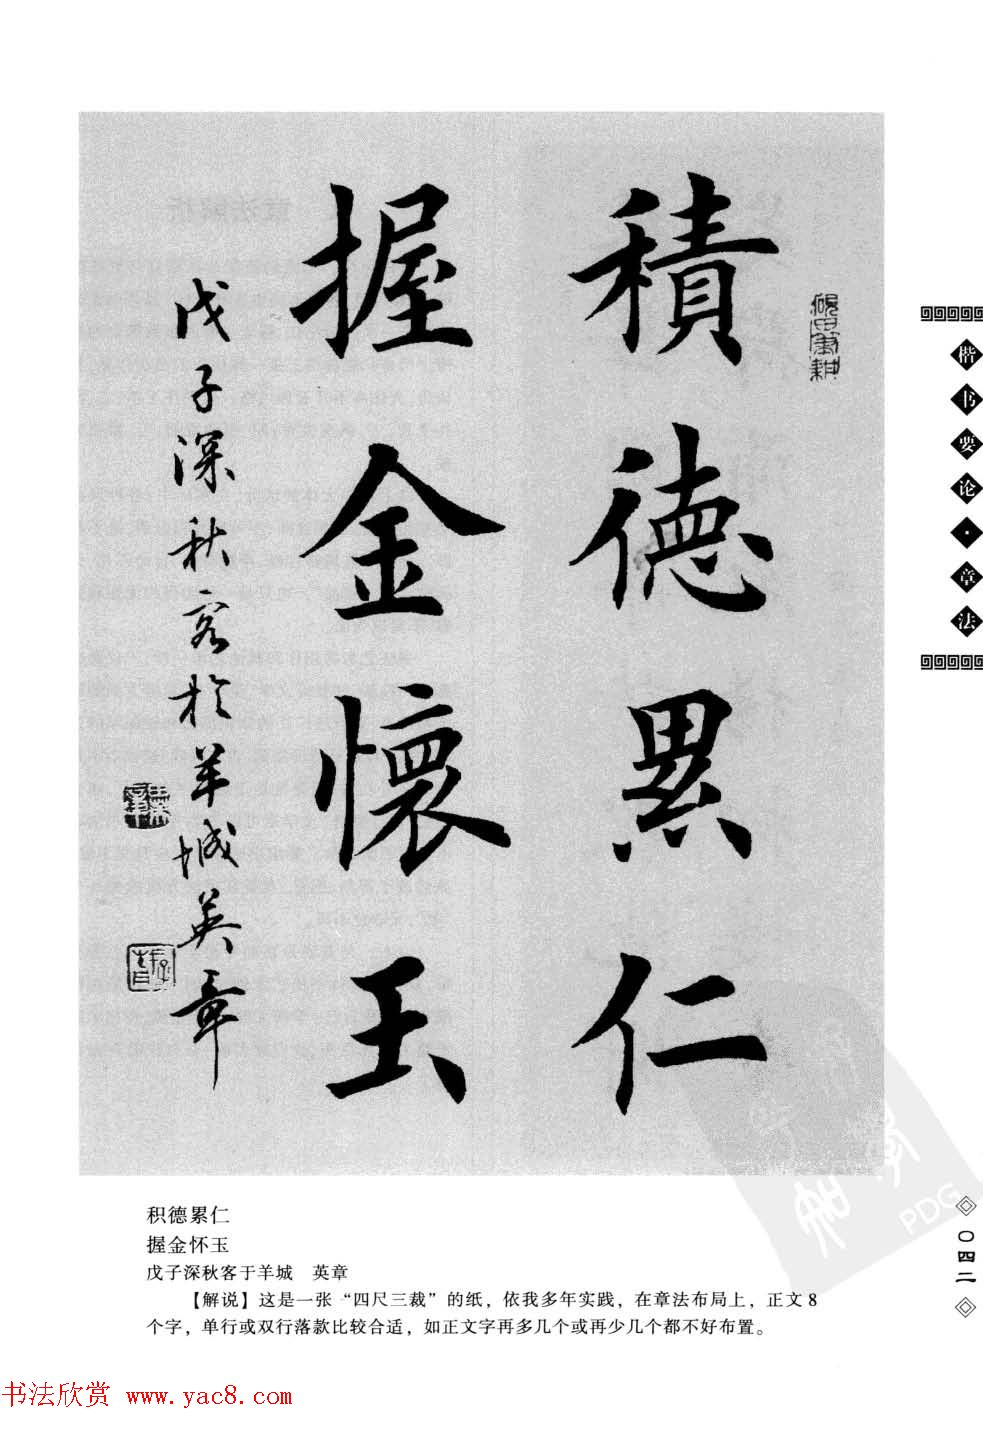 積德累仁
握金懷玉
戊子深秋客於羊城英章
砚田笔耕
楷书要论·章法
积德累仁
握金怀玉
戊子深秋客于羊城　英章
【解说】这是一张“四尺三裁”的纸，依我多年实践，在章法布局上，正文8
个字，单行或双行落款比较合适，如正文字再多几个或再少几个都不好布置。
〇四二
PDG
书法欣赏 www.yac8.com